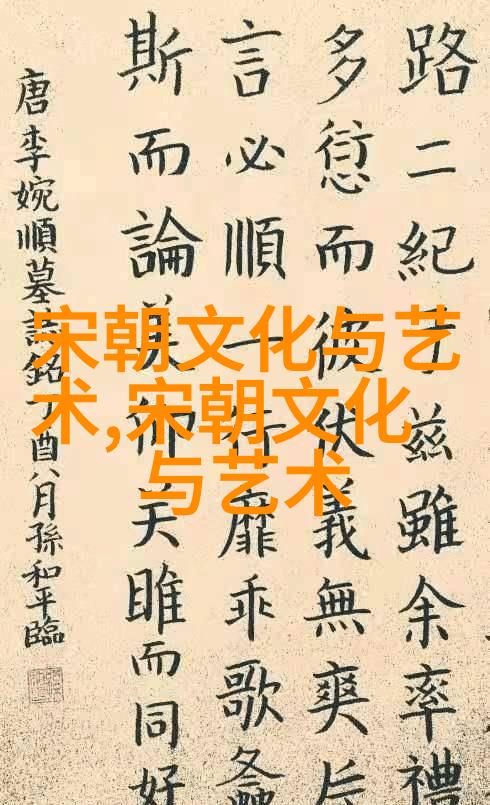 路二紀于兹雖余率禮
多愆而彼伏義無爽
言必順一行靡乖歌螽
斯而論美仰关雎而同好
唐李婉順墓誌銘丁酉八月孫和平臨
宋朝文化与艺
术,宋朝文化
与艺术